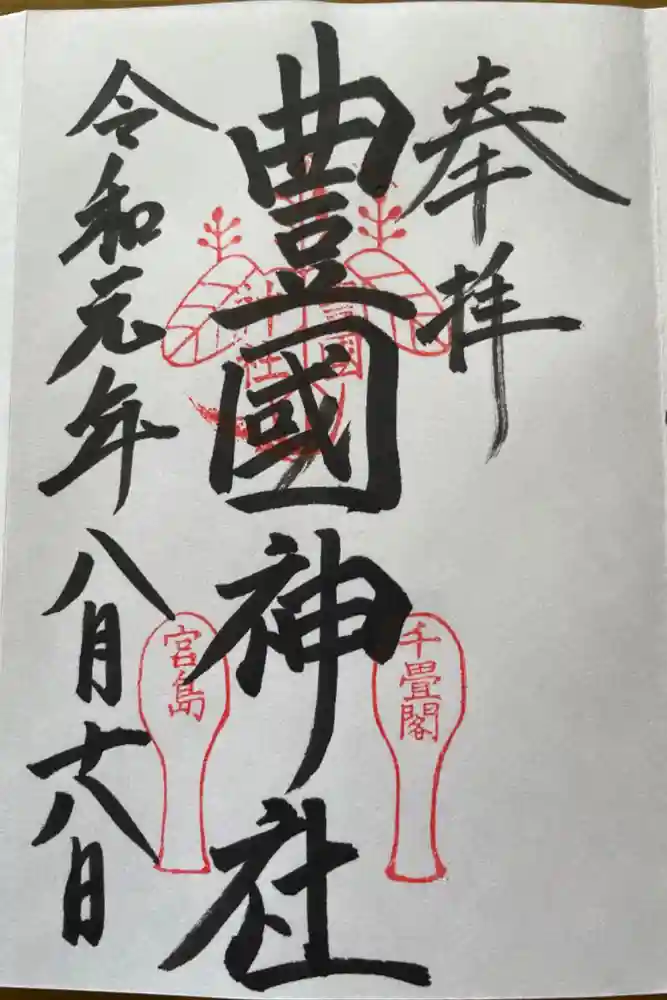 奉拝
豊國神社
千畳閣
豊國
神社
宮島
令和元年八月十八日